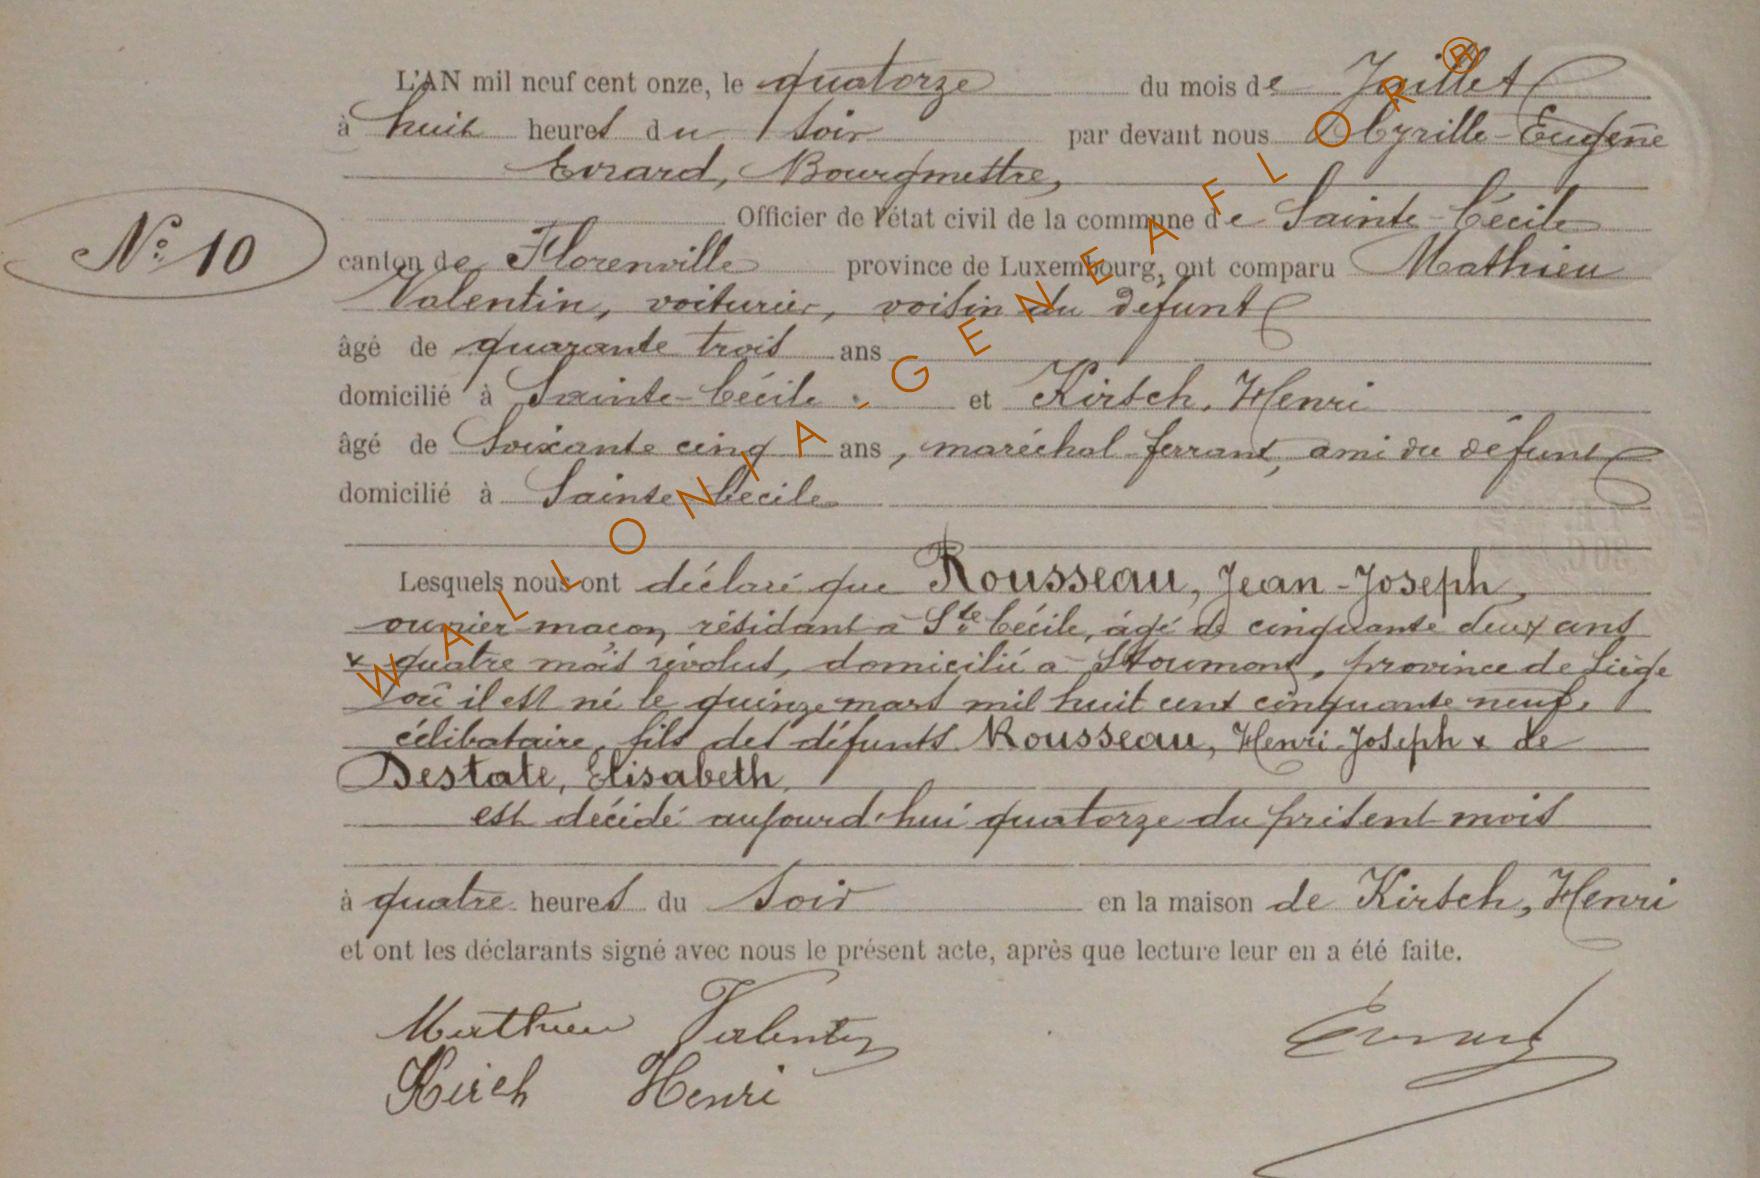 L'AN mil neuf cent onze, le quatorze du mois de Juillet
à huit heures du soir par devant nous Cyrille-Eugène
Evrard, Bourgmestre,
Officier de l'état civil de la commune de Sainte-Cécile
N° 10
canton de Florenville province de Luxembourg, ont comparu Mathieu
Valentin, voiturier, voisin du défunt
âgé de quarante trois ans
domicilié à Sainte-Cécile et Kirsch, Henri
âgé de soixante cinq ans, maréchal-ferrant, ami du défunt
domicilié à Sainte-Cécile
Lesquels nous ont déclaré que Rousseau, Jean-Joseph,
ouvrier maçon, résidant à Ste Cécile, âgé de cinquante deux ans
& quatre mois révolus, domicilié à Stoumont, province de Liège
où il est né le quinze mars mil huit cent cinquante neuf,
célibataire, fils des défunts Rousseau, Henri-Joseph & de
Destate, Elisabeth,
est décédé aujourd'hui quatorze du présent mois
à quatre heures du soir en la maison de Kirsch, Henri
et ont les déclarants signé avec nous le présent acte, après que lecture leur en a été faite.
Mathieu Valentin Evrard
Kirch Henri
WALLONIA-GENEAFLOR®